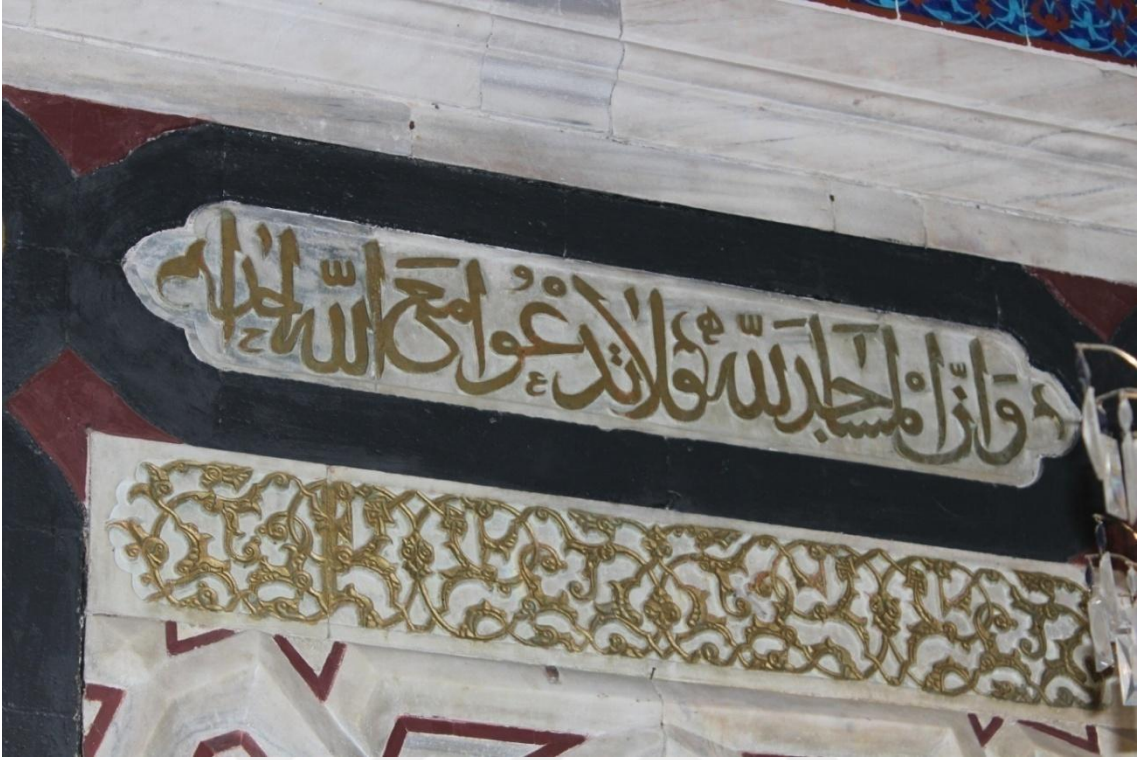 وَانَّ المَسَاجِدَ لِلّٰهِ فَلَا تَدْعُوا مَعَ اللّٰهِ اَحَدًا